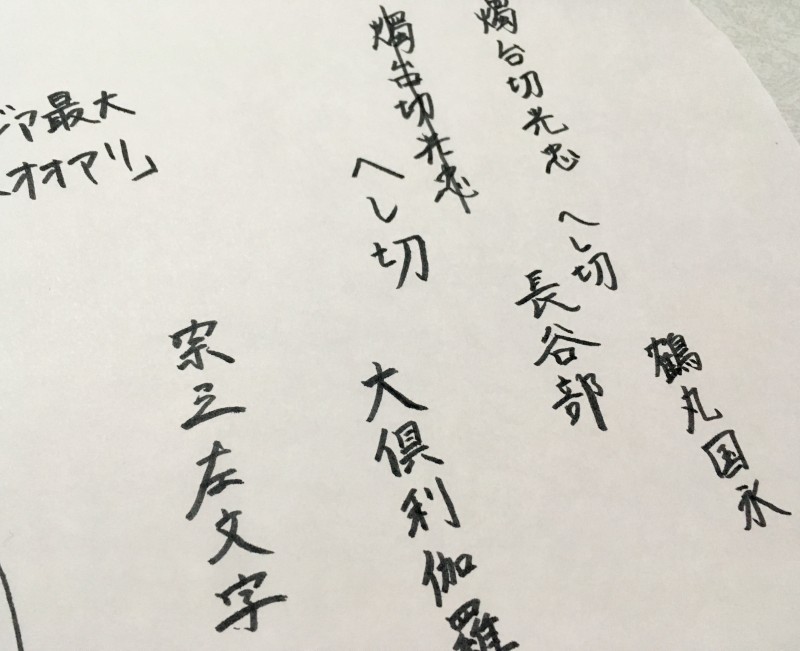 鶴丸国永
燭台切光忠
へし切
長谷部
燭台切光忠
へし切
大倶利伽羅
宗三左文字
ジア最大
オオアリ」